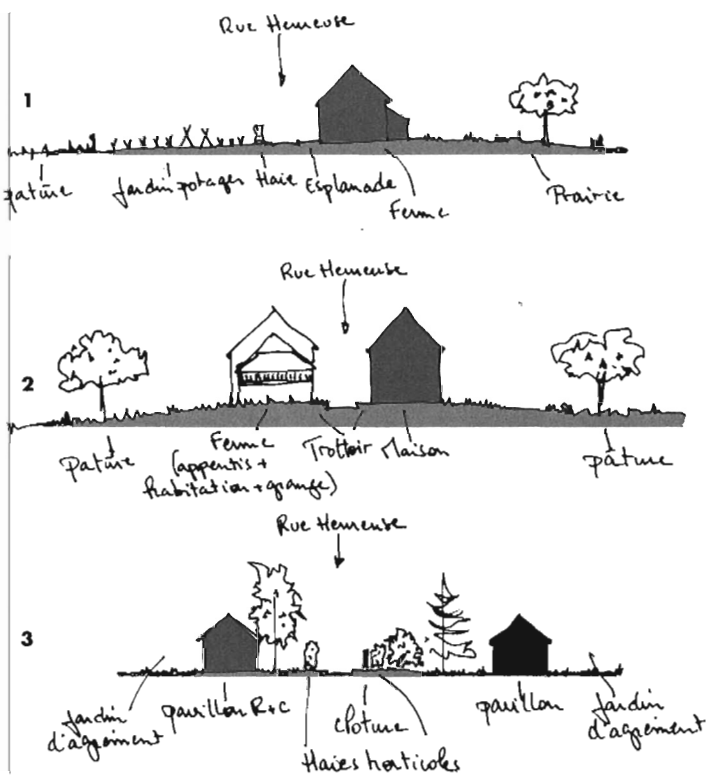 Rue Hemeuse
1
pature Jardin potager Haie Esplanade
Ferme
Prairie
Rue Hemeuse
2
pature
Ferme
(appentis +
habitation + grange)
Trottoir Maison
pâture
Rue Hemeuse
3
Jardin
d'agrément
pavillon R+C
cloture
Haies horticoles
pavillon
Jardin
d'agrément